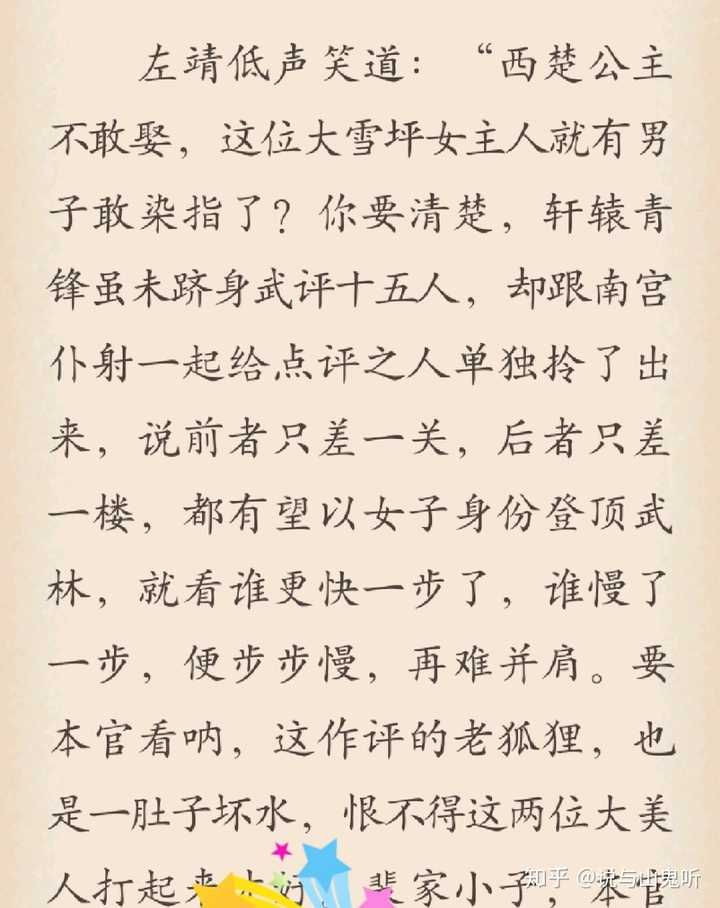 左靖低声笑道：“西楚公主
不敢娶，这位大雪坪女主人就有男
子敢染指了？你要清楚，轩辕青
锋虽未跻身武评十五人，却跟南宫
仆射一起给点评之人单独拎了出
来，说前者只差一关，后者只差
一楼，都有望以女子身份登顶武
林，就看谁更快一步了，谁慢了
一步，便步步慢，再难并肩。要
本官看呐，这作评的老狐狸，也
是一肚子坏水，恨不得这两位大美
人打起来才好。裴家小子，本官
知乎 @说与山鬼听